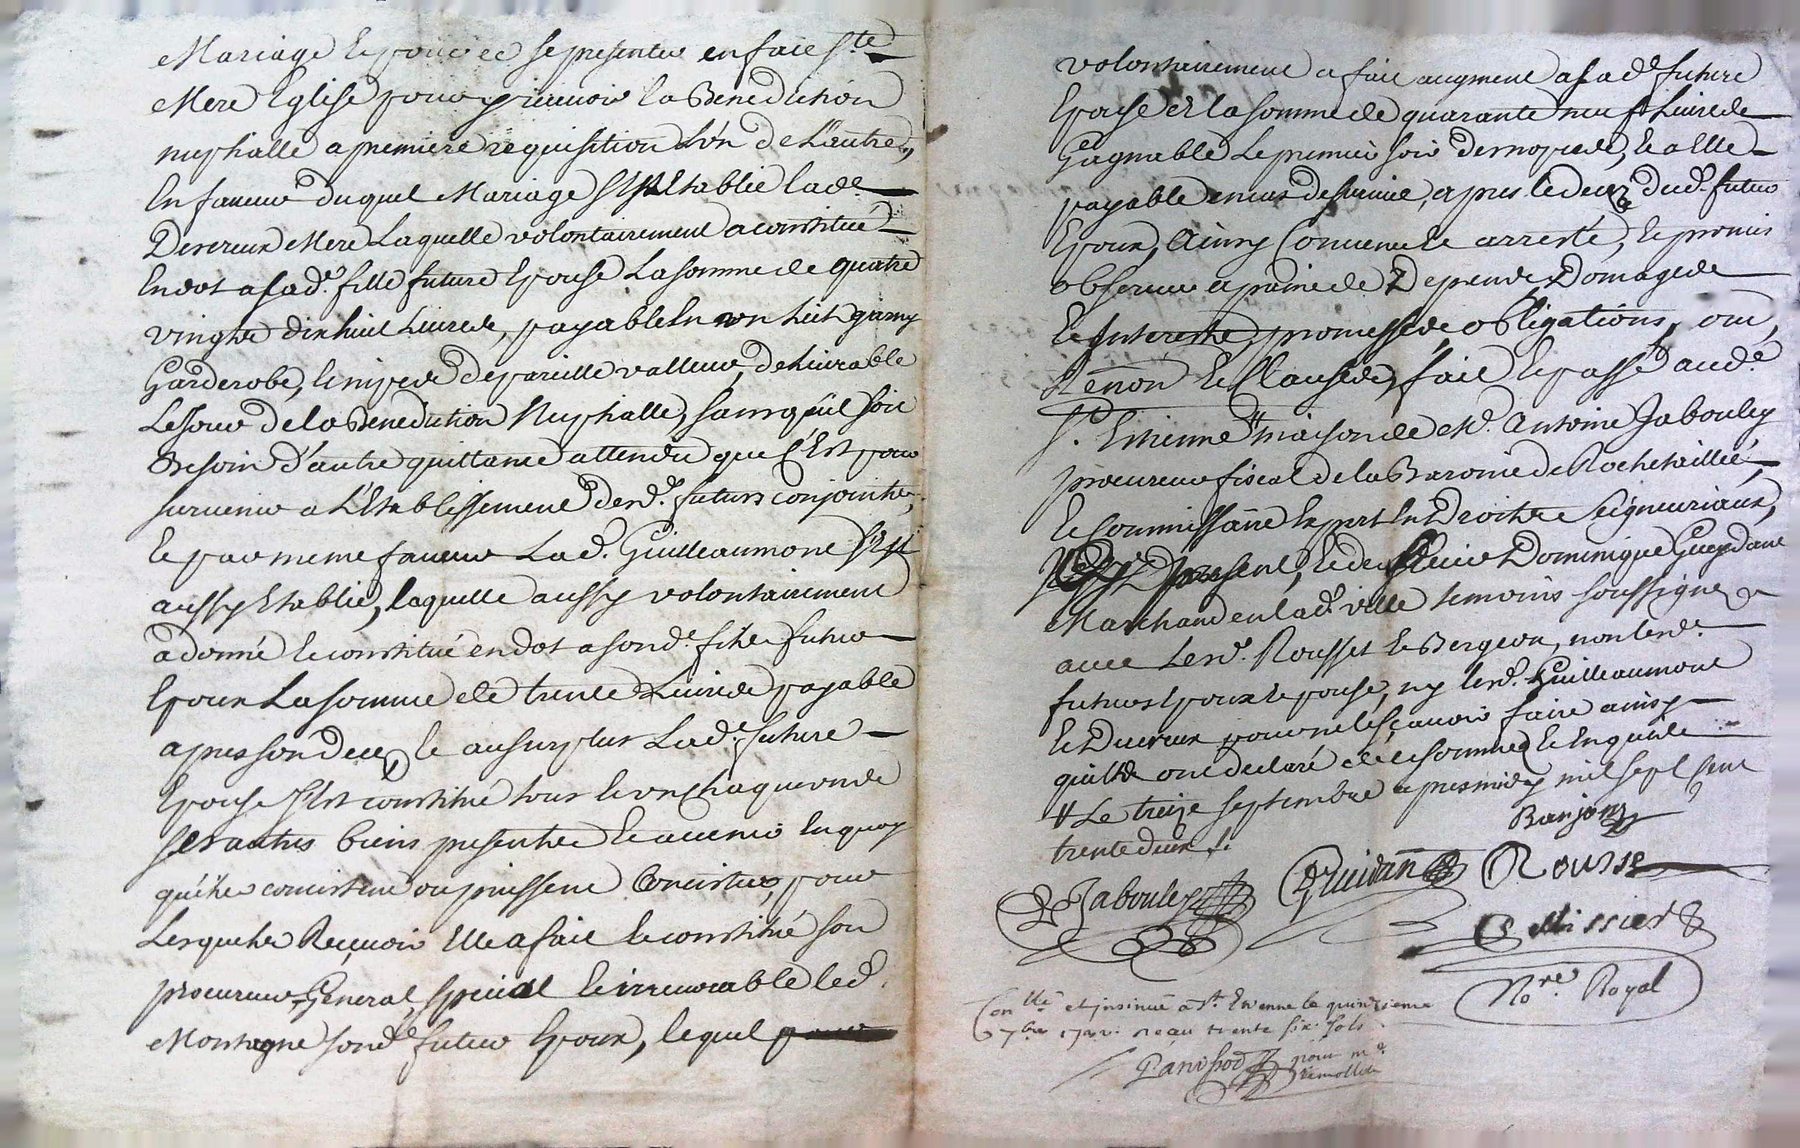 Mariage Epouser et se presenter en face Ste
Mere Eglise pour y recevoir la Benediction
nuptialle a premiere requisition L'un de L'autre,
En faveur duquel Mariage s'est Etablie lade
Devereux Mere Laquelle volontairement a constitué
En dot a sa de. fille future Epouse La somme de quatre
vingts dix huit Livres, payable En un Lict garny
Garderobe, de pareille valleur, delivrable
Le jour de la Benediction Nuptialle, sans qu'il soit
Besoin d'autre quittance attendu que C'Est pour
survenir a L'Etablissement desd. futurs conjoints,
Et par meme faveur Lad. Guilleaumont s'Est
aussy Etablie, laquelle aussy volontairement
a donné et constitué en dot a sond. fils futur
Epoux La somme de trente Livres payable
apres son deces, et au surplus Lad. future
Epouse s'Est constitué tous et un chaquun de
ses autres biens presents et avenir En quoy
qu'ils consistent ou puissent Concister, pour
Lesquels Recevoir Elle a fait et constitué son
procureur General, special et irrevocable led.
Montagne sond. futur Epoux, lequel
volontairement a fait augment a sad. future
Epouse de la somme de quarante neuf Livres
Gagnable Le premier soir de nopces, et a Elle
payable en cas de survie, apres le deces dud. futur
Epoux, Ainsy Convenu et arresté, et promis
observer a peine de Depends Domages
et Interests, promesses, obligations,
Renon et Clauses, fait et passé aud.
St. Etienne maison de Me. Antoine Jabouley
procureur fiscal de la Baronie de Rochetaillée,
et Commissaire Expert En Droits Seigneuriaux,
present, et de Sieur Dominique Gueydant
Marchand en lad. ville temoins soussignes
avec Lesd. Rousset et Bergeon, non lesd.
futurs Epoux et Epouse, ny lesd. Guilleaumont
et Devereux pour ne le sçavoir faire ainsy
qu'ils ont declaré de ce sommes et Enquis
Le treize septembre apres midy mil sept cent
trente deux.
Banjon
Jabouley
Guidan
Rousse
Missier
Nore. Royal
Conllé et insinué a St. Etienne le quinzieme
7bre 1732. reçu trente six sols
pour mr.